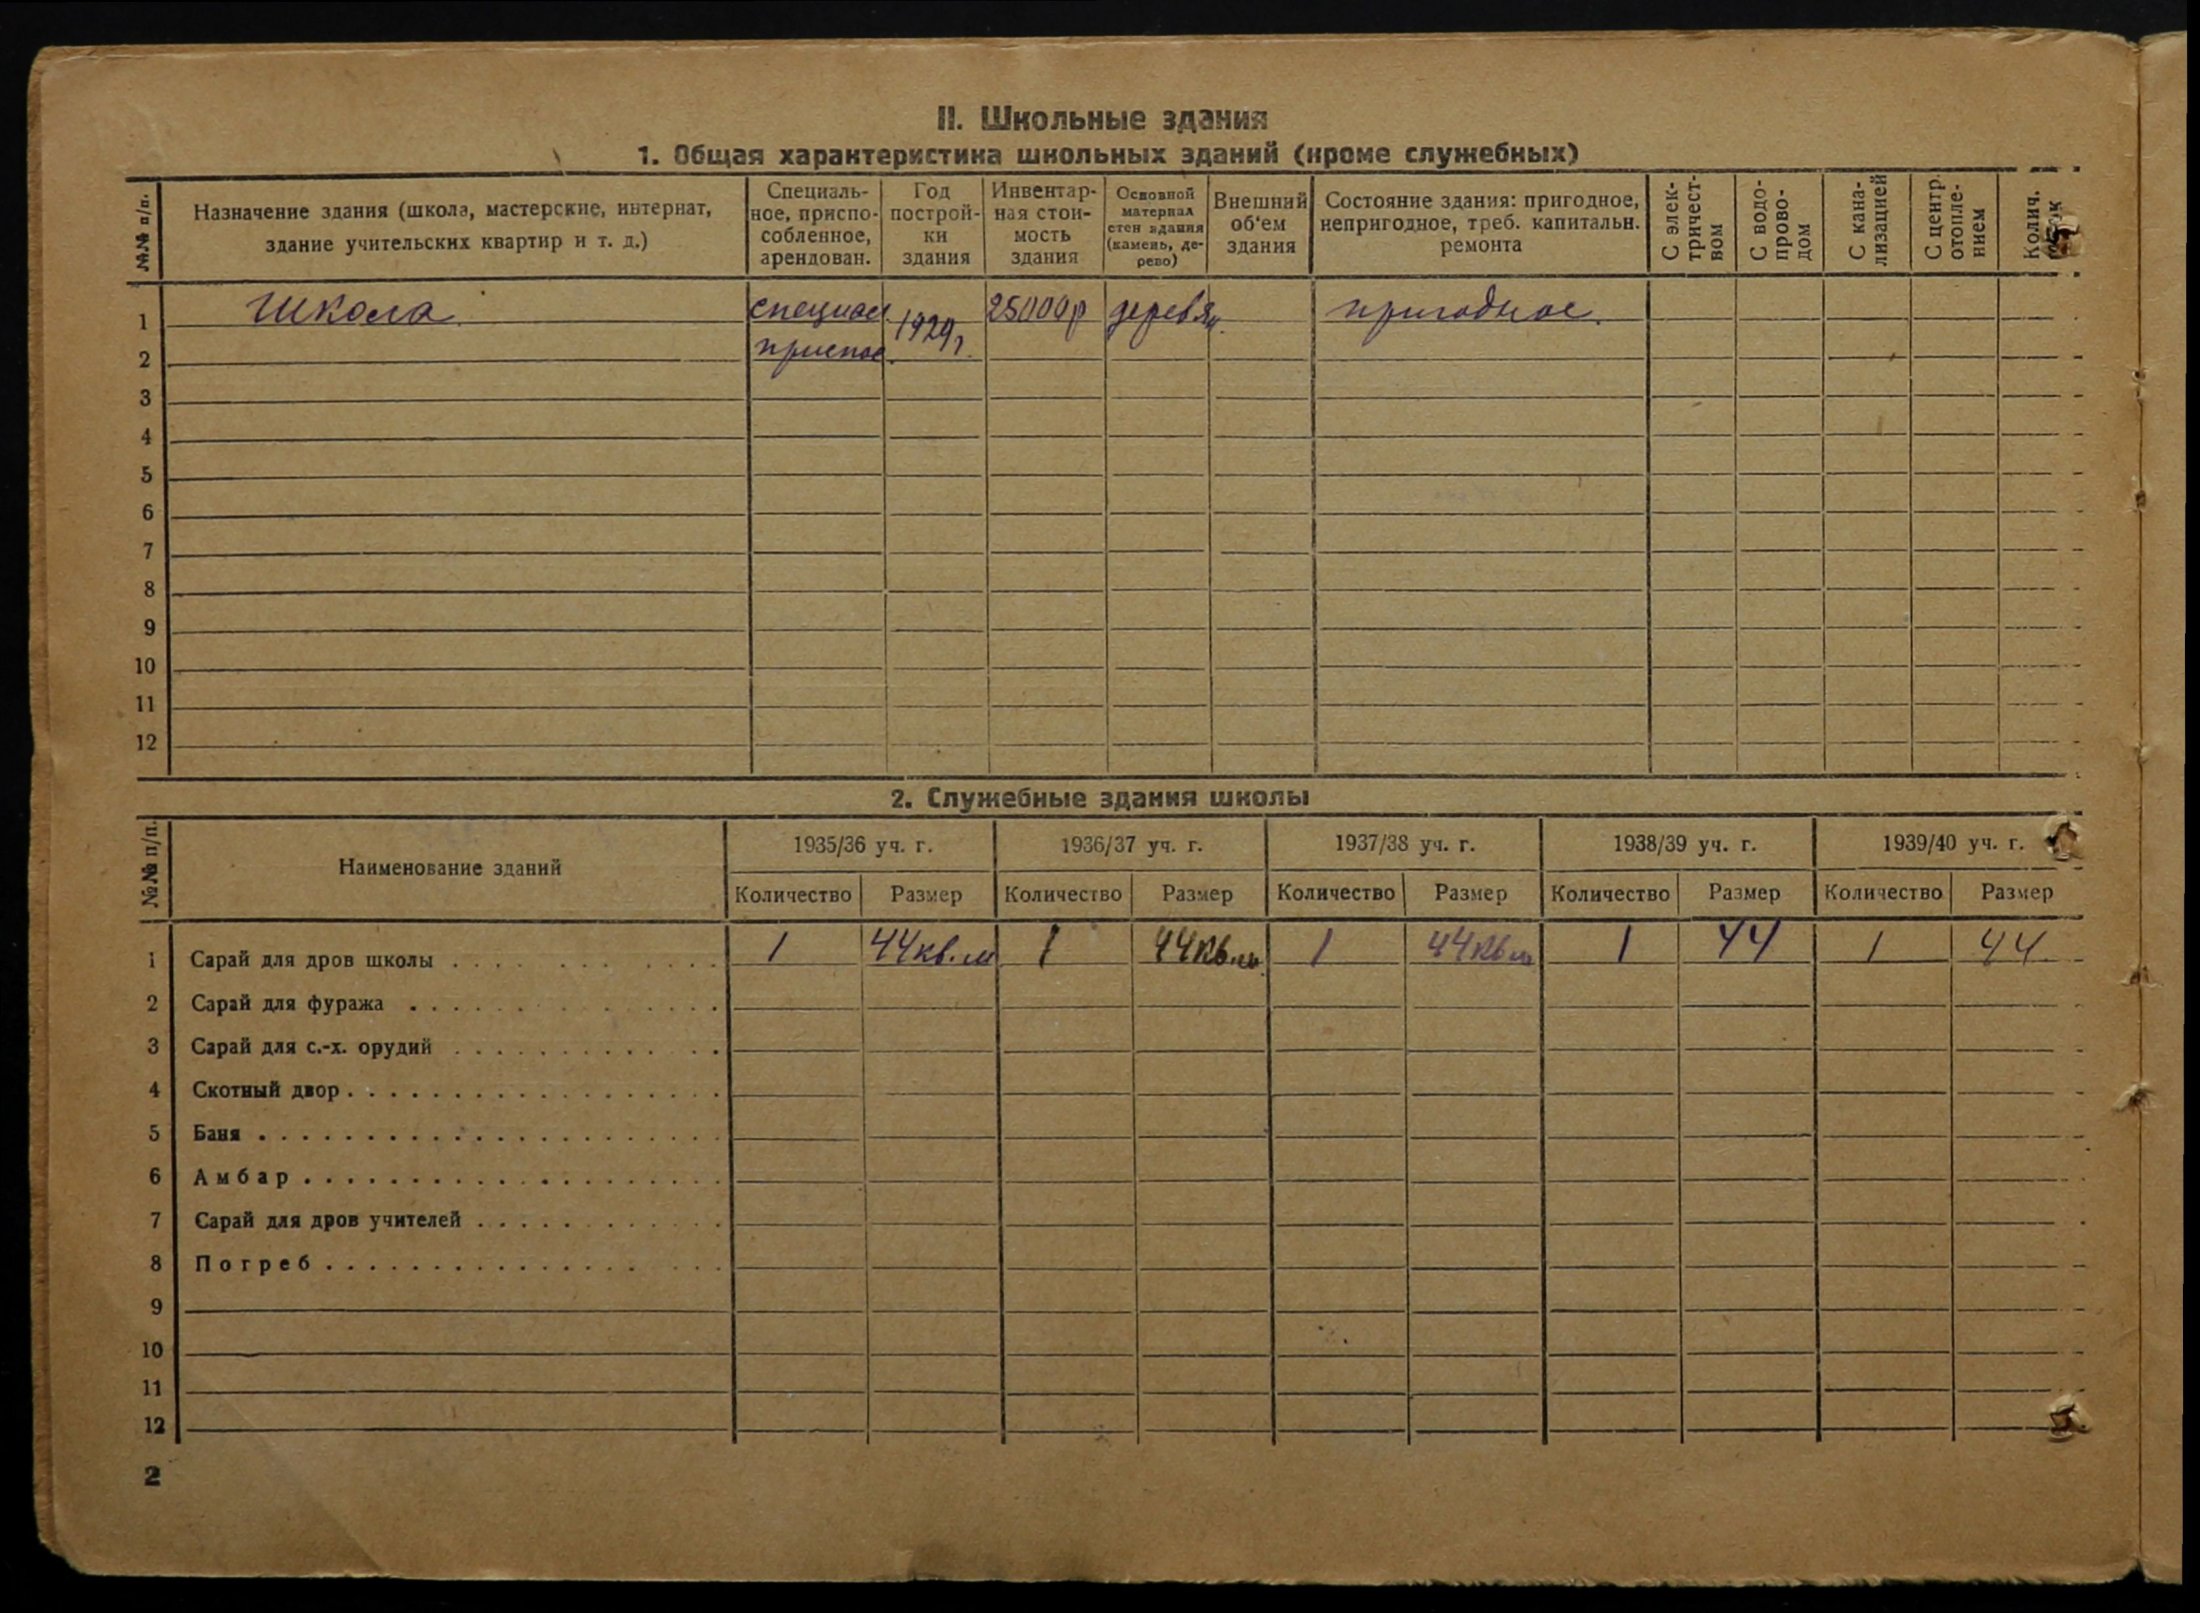 II. Школьные здания
1. Общая характеристика школьных зданий (кроме служебных)
№№ п/п.
Назначение здания (школа, мастерские, интернат,
здание учительских квартир и т. д.)
Специаль-
ное, приспо-
собленное,
арендован.
Год
построй-
ки
здания
Инвентар-
ная стои-
мость
здания
Основной
материал
стен здания
(камень, де-
рево)
Внешний
об'ем
здания
Состояние здания: пригодное,
непригодное, треб. капитальн.
ремонта
С элек-
тричест-
вом
С водо-
прово-
дом
С кана-
лизацией
С центр.
отопле-
нием
Колич.
1 Школа специал. 1929г. 25000р деревян. пригодное.
2 приспос.
3
4
5
6
7
8
9
10
11
12
2. Служебные здания школы
№№ п/п.
Наименование зданий
1935/36 уч. г. 1936/37 уч. г. 1937/38 уч. г. 1938/39 уч. г. 1939/40 уч. г.
Количество Размер Количество Размер Количество Размер Количество Размер Количество Размер
1 Сарай для дров школы 1 44кв.м 1 44кв.м 1 44кв.м 1 44 1 44
2 Сарай для фуража
3 Сарай для с.-х. орудий
4 Скотный двор
5 Баня
6 Амбар
7 Сарай для дров учителей
8 Погреб
9
10
11
12
2